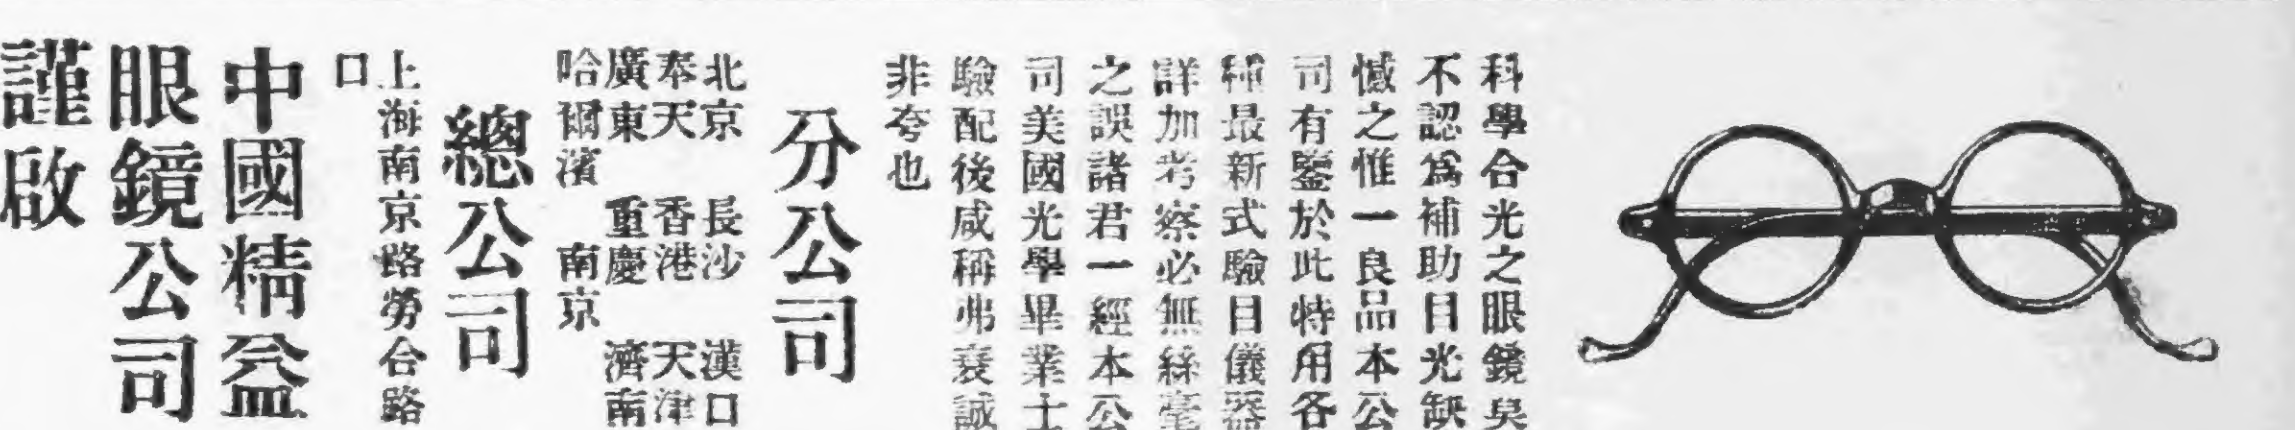 科學合光之眼鏡莫
不認爲補助目光缺
憾之惟一良品本公
司有鑒於此特用各
種最新式驗目儀器
詳加考察必無絲毫
之誤諸君一經本公
司美國光學畢業士
驗配後咸稱弗衰誠
非夸也
分公司
北京 長沙 漢口
奉天 香港 天津
廣東 重慶 濟南
哈爾濱 南京
總公司
上海南京路勞合路
口
中國精益
眼鏡公司
謹啟